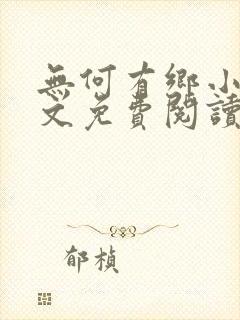 無何有鄉小
文免費閱讀
郁楨